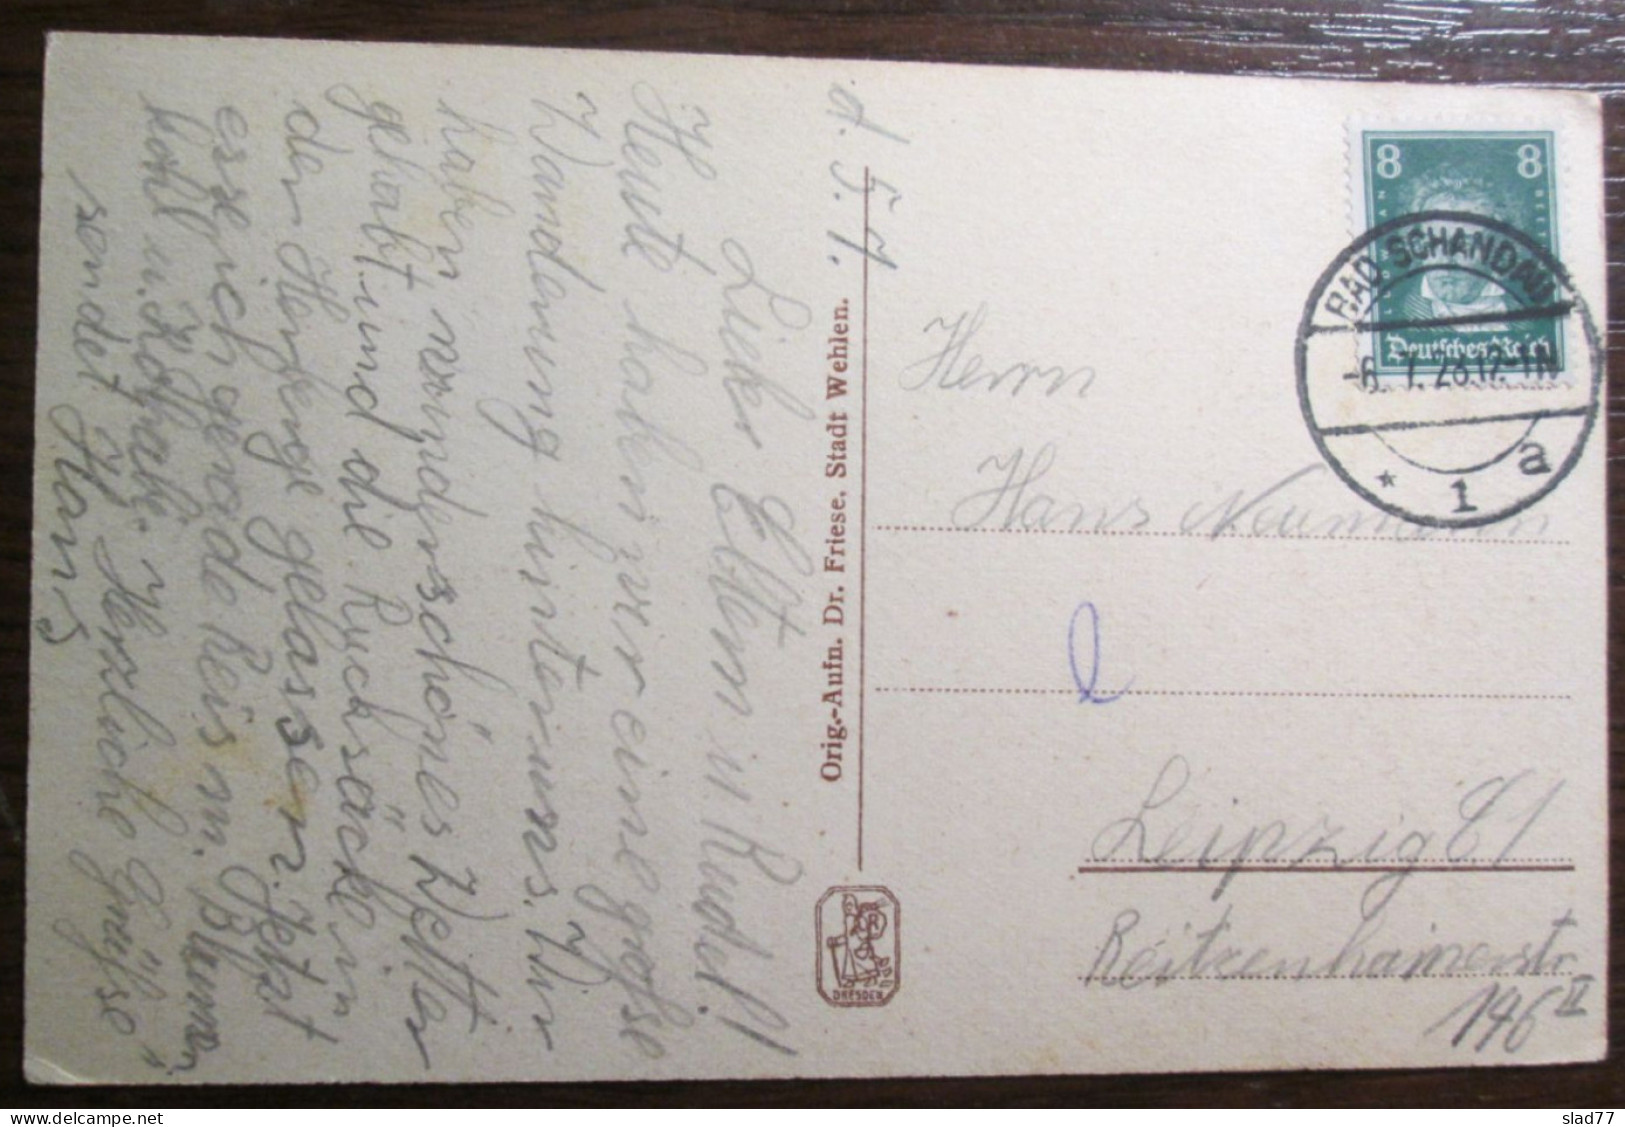 d. 5. 7.
Liebe Eltern u. Rudel!
Heute haben wir eine große
Wanderung hinter uns. Wir
haben wunderschönes Wetter
gehabt und die Rucksäcke in
der Herberge gelassen. Jetzt
esse ich gerade Reis m. Blumen
kohl u. Kohlrabi. Herzliche Grüße
sendet Hans
Orig.-Aufn. Dr. Friese, Stadt Wehlen.
DRESDEN
8 8
LUDWIG VAN BEETHOVEN
Deutsches Reich
BAD SCHANDAU
-6. 7. 28. 12-1N
* 1 a
Herrn
Hans Neumann
Leipzig C1
Reitzenhainerstr
146 II
slad77